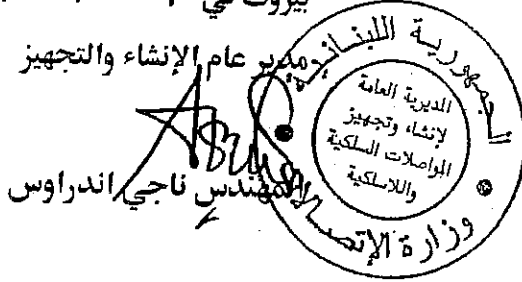 بيروت في
مدير عام الإنشاء والتجهيز
المهندس ناجي اندراوس
الجمهورية اللبنانية
المديرية العامة
لإنشاء وتجهيز
المواصلات السلكية
واللاسلكية
وزارة الإتصالات